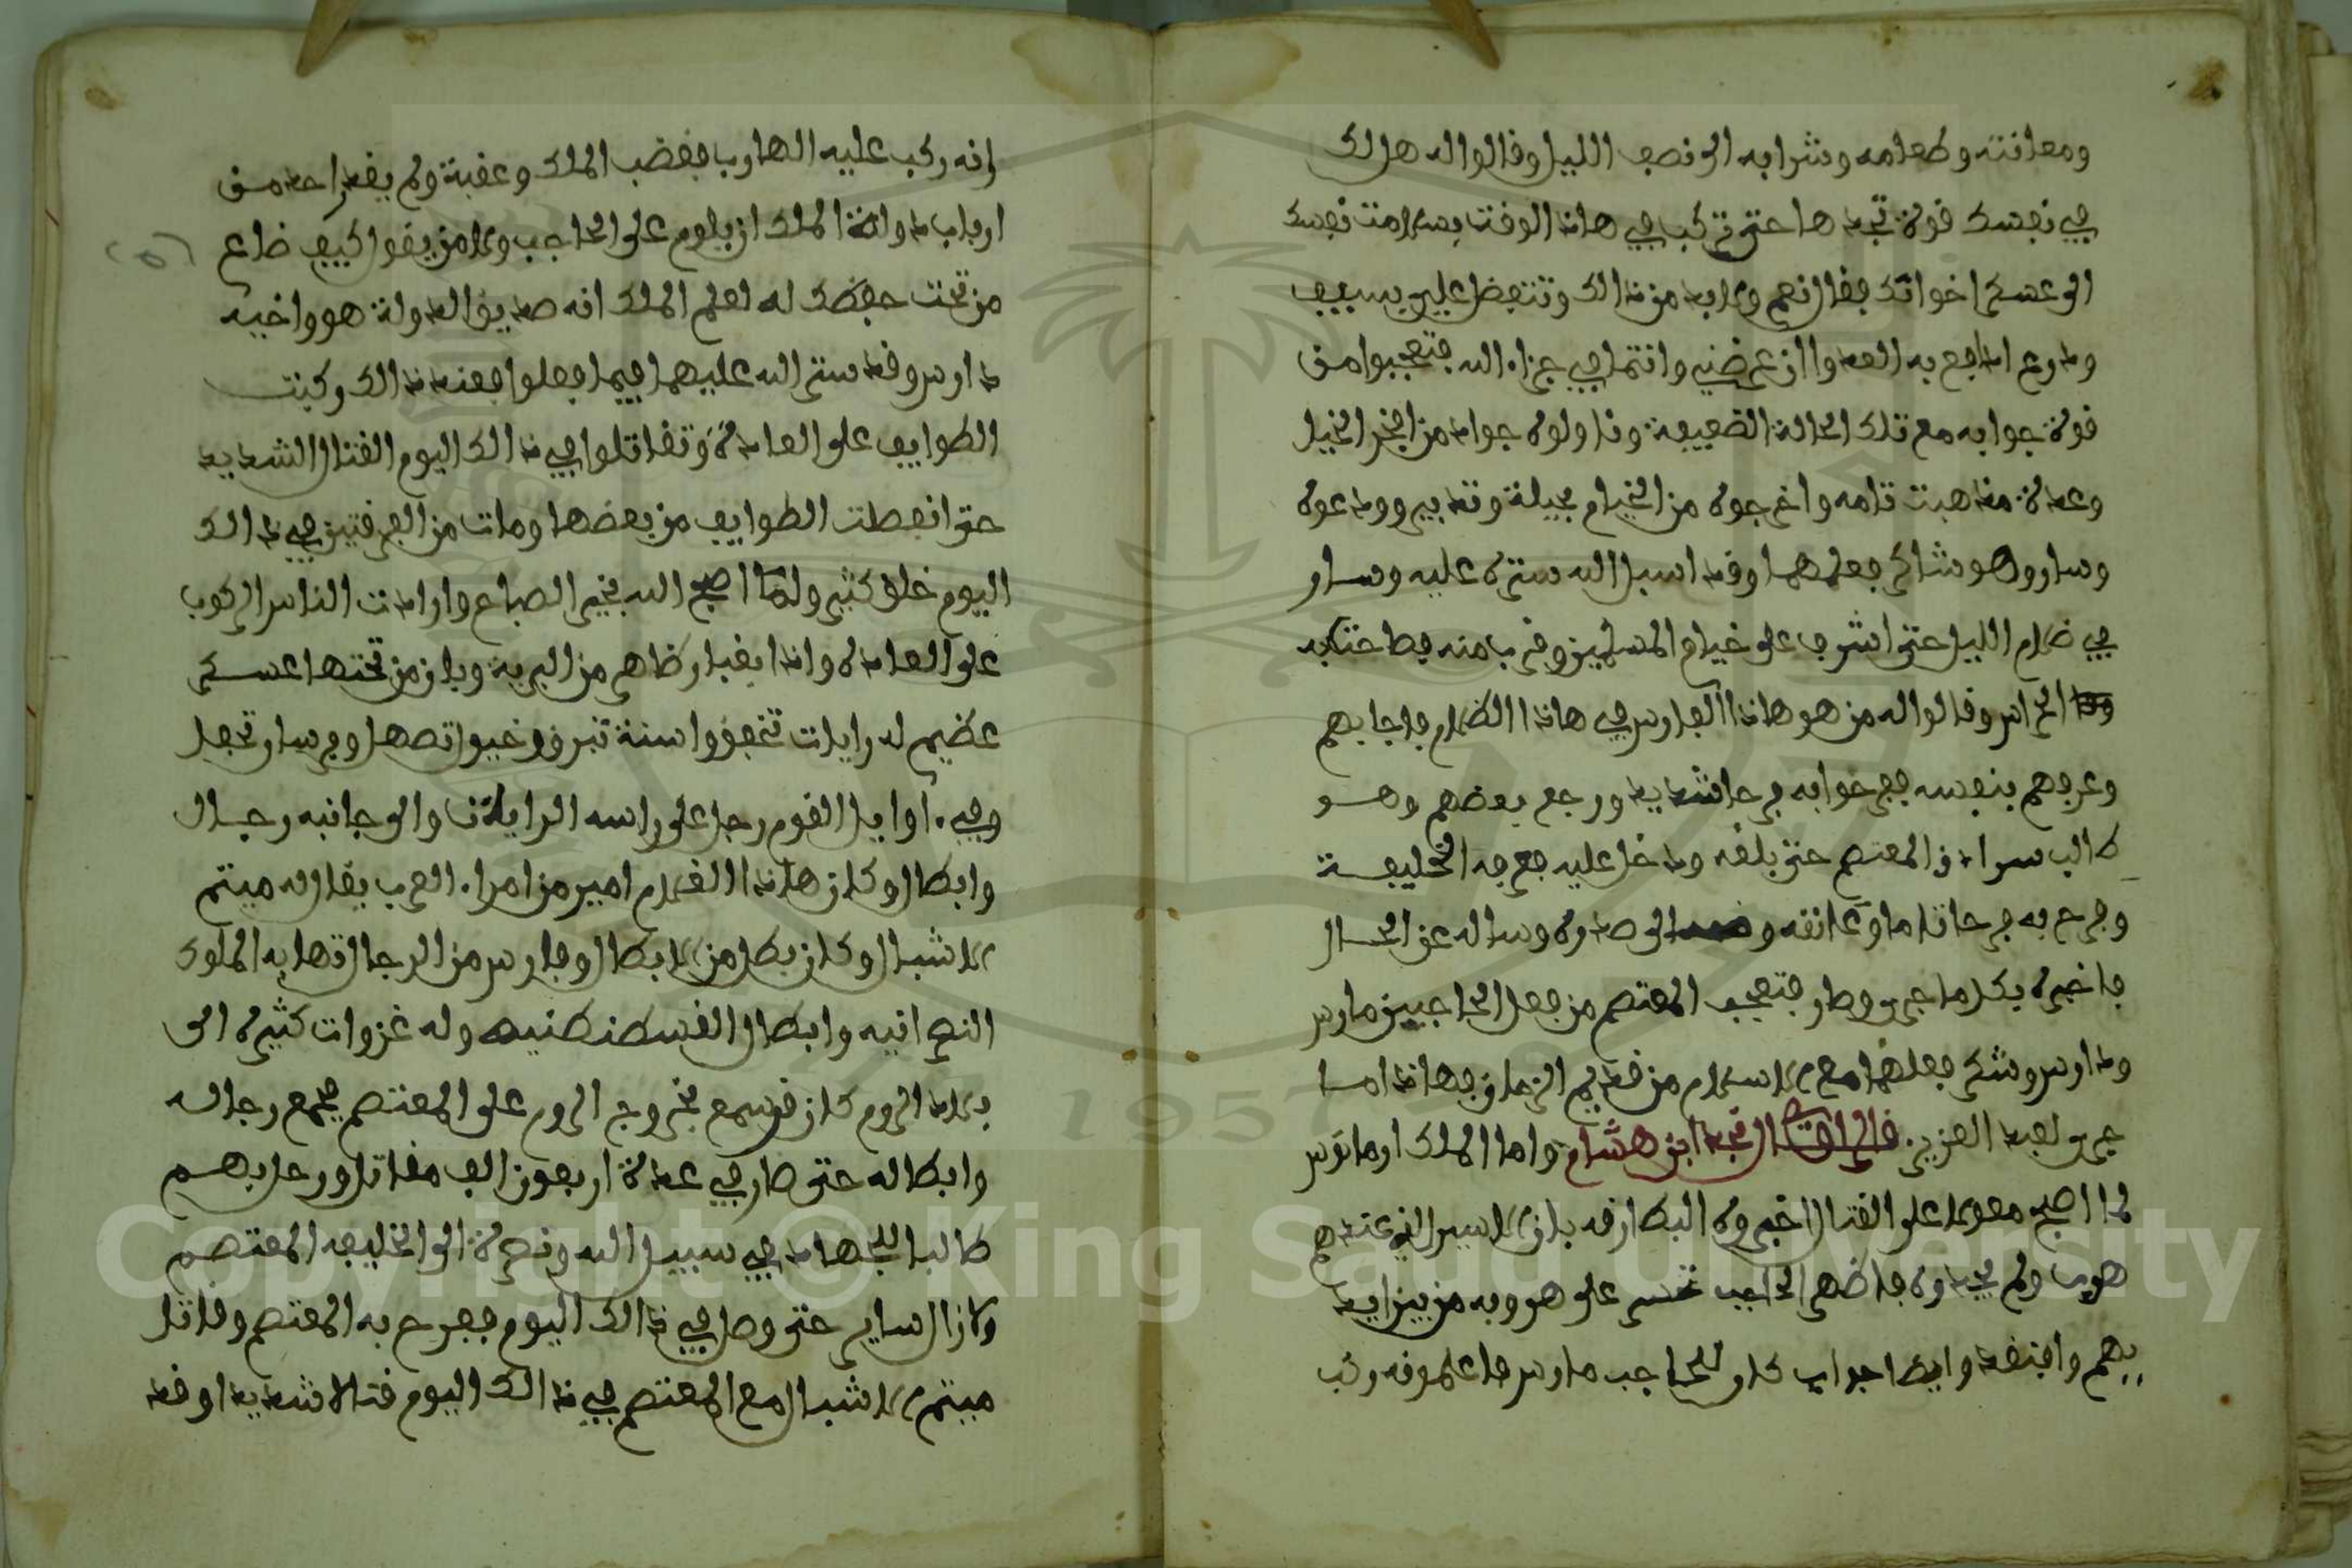 ومعانقته وطعامه وشرابه الى نصف الليل وقالوا له هل لك
في نفسك قوة تجدها حتى تركب في هاذا الوقت بسلامت نفسك
الى عسكر اخوانك فقال نعم ولابد من ذالك وتتفضل علي بسيف
ودرع ادافع به العدوا ان عرضني وانتما في جزاء الله فتعجبوا من
قوة جوابه مع تلك الحالة الضعيفة وناولوه جواد من افخر الخيل
وعدة مذاهبت تامه واخرجوه من الخيام بحيلة وتدبير وودعوه
وسار وهو شاكر فعلهما وقد اسبل الله ستره عليه وسار
في ضلام الليل حتى اشرف على خيام المسلمين وقرب منه
الحراس وقالوا له من هو هاذا الفارس في هاذا الظلام فاجابهم
وعرفهم بنفسه ففرحوا به فرحا شديد ورجع بعضهم وهو
طالب سرادق المعتصم حتى بلغه ودخل عليه فعرفه الخليفة
وفرح به فرحا تاما وعانقه الى صدره وساله عن الحال
فاخبره بكل ما جرى وصار فتعجب المعتصم من فعل الحاجبين مارس
ودارس وشكر فعلهما مع الاسلام من قديم الزمان فهاذا ما
جرى لعبد العزيز قال الراوي نجد ابن هشام واما الملك ارمانوس
لما اصبح معولا على القتال اخبروه البطارقه بان الاسير الذي عندهم
هرب ولم يجدوه فاظهر الحاجب تحسر على هروبه من بين ايد
يهم وافتقد وايضا جواب كان للحاجب مارس فاعلموه
وانه ركب عليه الهارب فغضب الملك وعقبة ولم يقدر احد من
ارباب دولة الملك ان يلوم على الحاجب ولا من يقول كيف ضاع
من تحت حفظك له لعلم الملك انه صديق الدولة هو واخيه
دارس وقد ستر الله عليهما فيما فعلوا فعند ذالك ركبت
الطوايف على العادة وتقاتلوا في ذالك اليوم القتال الشديد
حتى انفصلت الطوايف من بعضها ومات من الفرقتين في ذالك
اليوم خلق كثير ولما اصبح الله بخير الصباح وارادت الناس الركوب
على العادة واذا بغبار ظاهر من البرية وبان من تحتها عسكر
عظيم له رايات تخفق واسنة تبرق وخيول تصهل وفرسان تجفل
وفي اوايل القوم رجل على راسه الرايات والى جانبه رجال
وابطال وكان هاذا القادم امير من امراء العرب يقال له ميثم
الاشبال وكان بطل من الابطال وفارس من الرجال تهابه الملوك
النصرانيه وابطال القسطنطنيه وله غزوات كثيره الى
بلاد الروم كان قد سمع بخروج الروم على المعتصم فجمع رجاله
وابطاله حتى صار في عدة اربعون الف مقاتل ورحل بهم
طالبا للجهاد في سبيل الله ونصرة الى الخليفه المعتصم
ولازال ساير حتى وصل في ذالك اليوم ففرح به المعتصم وقاتل
ميثم الاشبال مع المعتصم في ذالك اليوم قتالا شديدا وقد